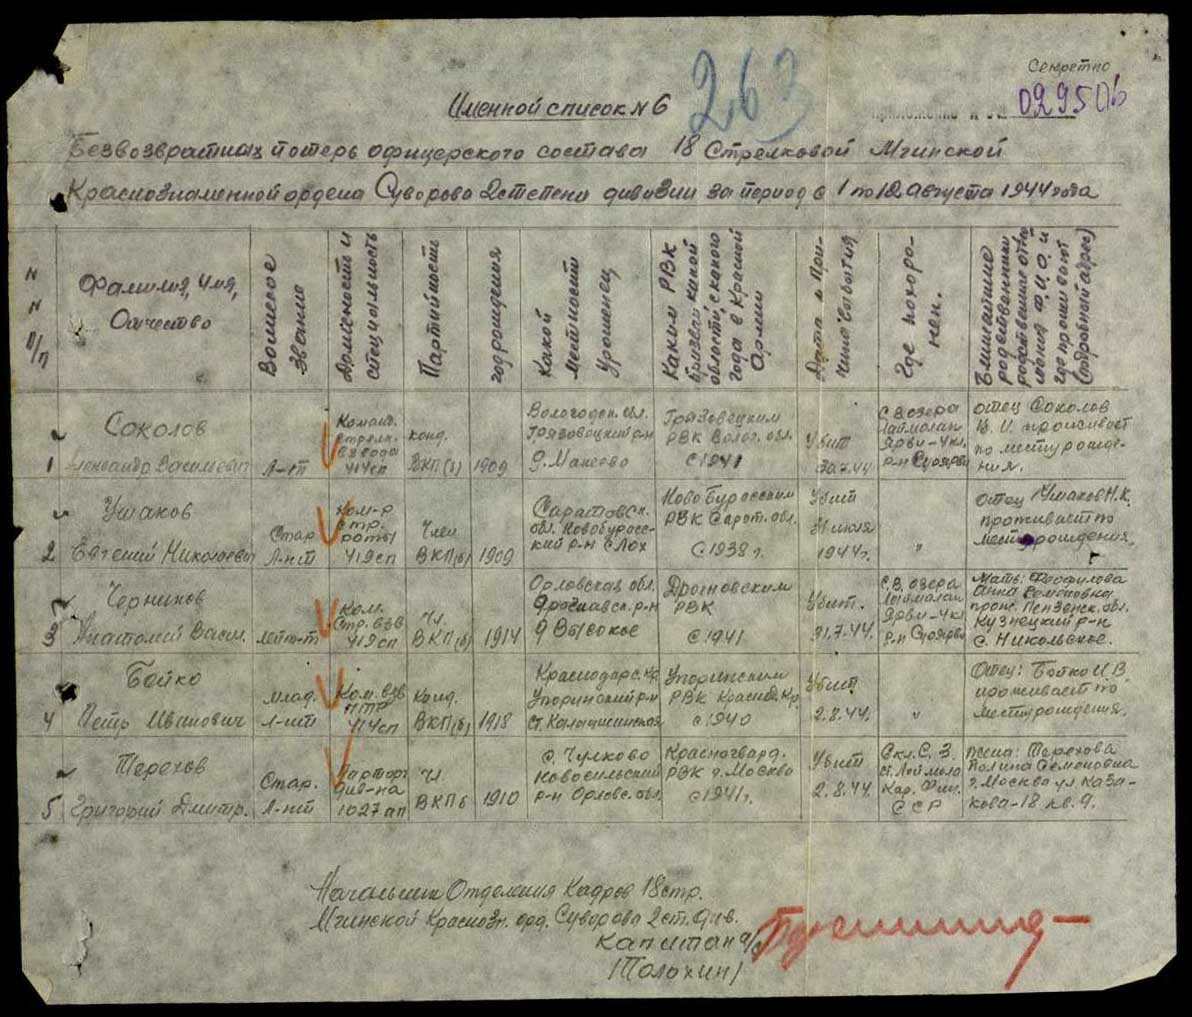 Секретно
263
029506
Именной список N 6
Безвозвратных потерь офицерского состава 18 Стрелковой Мгинской
Краснознаменной ордена Суворова 2 степени дивизии за период с 1 по 10 августа 1944 года
N N п/п
Фамилия, Имя,
Отчество
Воинское
звание
Должность и
специальность
Партийность
год рождения
Какой
местности
уроженец
Каким РВК
призван какой
области, с какого
года в Красной
Армии
Дата и При-
чина выбытия
Где похоро-
нен.
Ближайшие
родственники
где проживают
(подробный адрес)
1
Соколов
Александр Васильевич
Л-нт
Команд.
стрелк.
взвода
414 сп
канд.
ВКП(б)
1909
Вологодск. обл.
Грязовецкий р-н
д. Макеево
Грязовецким
РВК Волог. обл.
с 1941
Убит
30.7.44
С.В. озера
Лаймолан
Ярви-4 кл.
р-н Суоярви
отец Соколов
В. И. проживает
по месту рожде-
ния.
2
Ушаков
Евгений Николаевич
Стар.
Л-нт
Ком-р
стр.
роты
419 сп
Член
ВКП(б)
1909
Саратовск.
обл. Новобурасс-
кий р-н с Лох
Ново Бурасским
РВК Сарат. обл.
с 1938 г.
Убит
31 июля
1944 г.
"
отец Ушаков Н.К.
проживает по
месту рождения.
3
Черников
Анатолий Васил.
лейт-т
Ком.
Стр. взв
419 сп
Чл.
ВКП(б)
1914
Орловская обл.
д Высокое
РВК
с 1941
Убит.
31.7.44.
С.В. озера
Лаймолан
Ярви-4 кл
р-н Суоярви
Мать: Феофилова
Анна Семеновна
прож. Пензенск. обл.
Кузнецкий р-н
с. Никольское.
4
Бойко
Петр Иванович
Млад.
Л-нт
Ком. взв
ПТР
414 сп
Канд.
ВКП(б)
1918
Краснодарс. кр.
Упоринский р-н
Упоринским
РВК Краснод. Кр.
с 1940
Убит
2.8.44.
"
Отец: Бойко И.В.
проживает по
месту рождения.
5
Терехов
Григорий Дмитр.
Стар.
Л-нт
Парторг
див-на
1027 ап
Чл.
ВКП б
1910
с. Чулково
Новосильский
р-н Орловс. обл.
Красногвард.
РВК г. Москва
с 1941 г.
Убит
2.8.44.
Скл. С. З.
ст. Лаймола
Кар. Фин.
ССР
жена: Терехова
Полина Семеновна
г. Москва ул Каза-
кова-18 кв. 9.
Начальник Отделения Кадров 18 стр.
Мгинской Краснозн. орд. Суворова 2 ст. див.
Капитан а/с
/Толохин/